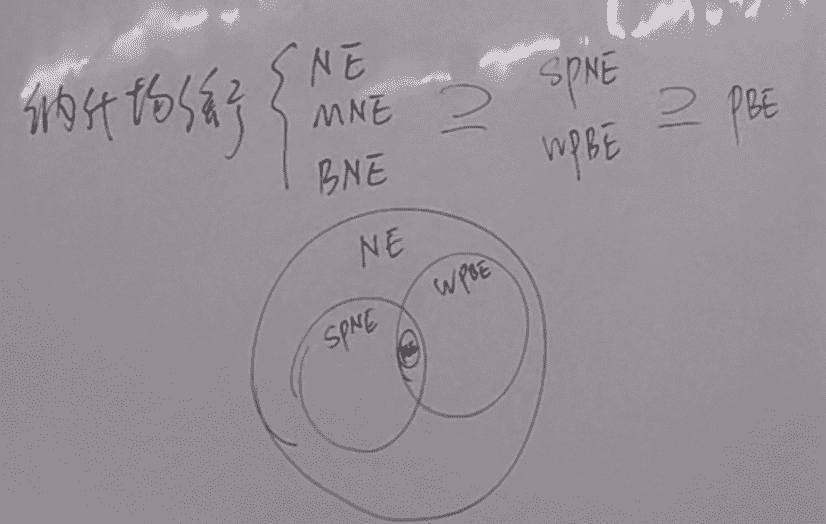 纳什均衡 { NE MNE BNE ⊇ SPNE WPBE ⊇ PBE
NE
WPBE
SPNE